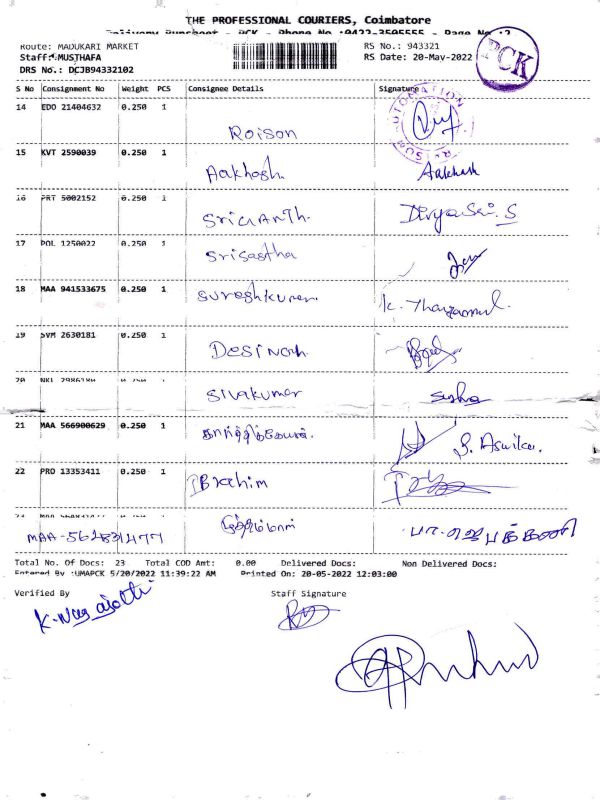 THE PROFESSIONAL COURIERS, Coimbatore
Delivery Runsheet - PCK - Phone No :0422-3505555 - Page No :2
Route: MADUKARI MARKET RS No.: 943321
Staff:MUSTHAFA RS Date: 20-May-2022
DRS No.: DCJB94332102
PCK
S No Consignment No Weight PCS Consignee Details Signature
14 EDO 21404632 0.250 1
Roison
15 KVT 2590039 0.250 1
Aakhash Aakhash
16 PRT 5002152 0.250 1
Sricianth. DivyaSri. S
17 POL 1250022 0.250 1
Srisastha
18 MAA 941533675 0.250 1
Sureshkumar. K. Thangamul.
19 SVM 2630181 0.250 1
Desinah
20 NKL 0.250 1
Sivakumar Susha
21 MAA 566900629 0.250 1
கார்த்திக்கேயன். S. Aswika.
22 PRO 13353411 0.250 1
IBrahim
23 MAA
MAA-562831477 முத்தம்மாள்
Total No. Of Docs: 23 Total COD Amt: 0.00 Delivered Docs: Non Delivered Docs:
Entered By :UMAPCK 5/20/2022 11:39:22 AM Printed On: 20-05-2022 12:03:00
Verified By Staff Signature